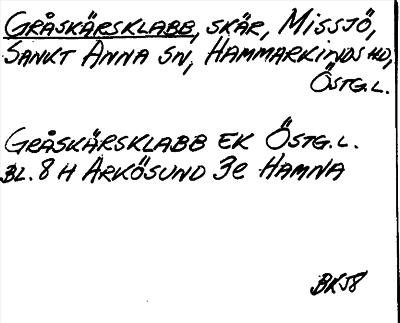 GRÅSKÄRSKLABB, SKÄR, MISSJÖ,
SANKT ANNA SN, HAMMARKINDS HD,
ÖSTG.L.
GRÅSKÄRSKLABB EK ÖSTG.L.
BL. 8 H ARKÖSUND 3e HAMNA